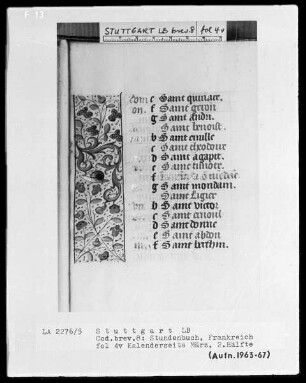 F 13
STUTTGART LB brev.8 fol 4v
c Saint quiriace.
f Saint geron
g Saint
Saint benoist.
b Saint emille
c Saint theodour
d Saint agapit.
e Saint timote.
f
g Saint mondain.
Saint ligier
b Saint victor
c Saint
d Saint donne
e Saint abdon
f Saint
LA 2276/5 Stuttgart LB
Cod.brev.8: Stundenbuch, Frankreich
fol 4v Kalenderseite März, 2.Hälfte
(Aufn.1963-67)